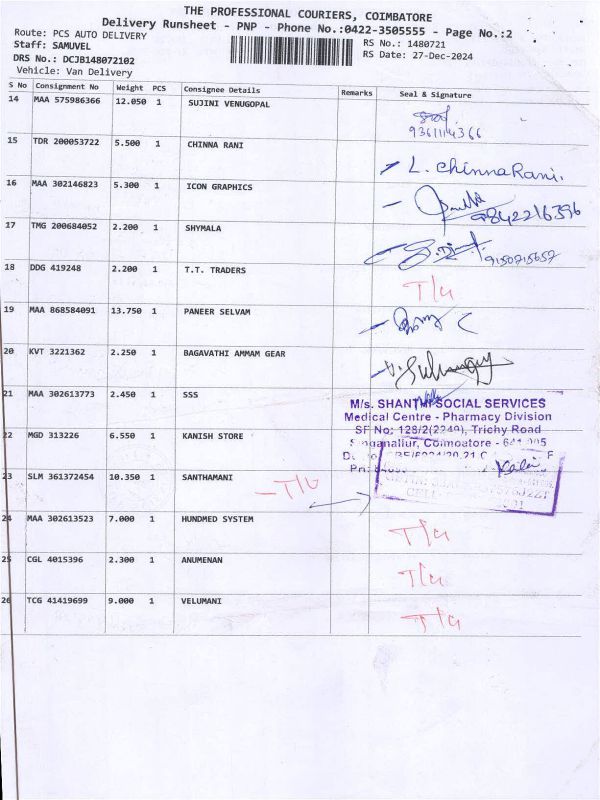 THE PROFESSIONAL COURIERS, COIMBATORE
Delivery Runsheet - PNP - Phone No.:0422-3505555 - Page No.:2
Route: PCS AUTO DELIVERY
RS No.: 1480721
Staff: SAMUVEL
RS Date: 27-Dec-2024
DRS No.: DCJB148072102
Vehicle: Van Delivery
S No Consignment No Weight PCS Consignee Details Remarks Seal & Signature
14 MAA 575986366 12.050 1 SUJINI VENUGOPAL
9361114366
15 TDR 200053722 5.500 1 CHINNA RANI L. chinnaRani.
16 MAA 302146823 5.300 1 ICON GRAPHICS 9842216396
17 TMG 200684052 2.200 1 SHYMALA 9150715657
18 DDG 419248 2.200 1 T.T. TRADERS T/u
19 MAA 868584091 13.750 1 PANEER SELVAM
20 KVT 3221362 2.250 1 BAGAVATHI AMMAM GEAR
21 MAA 302613773 2.450 1 SSS
M/s. SHANTHI SOCIAL SERVICES
Medical Centre - Pharmacy Division
SF No: 128/2(2249), Trichy Road
Singanallur, Coimbatore - 641 005
22 MGD 313226 6.550 1 KANISH STORE
23 SLM 361372454 10.350 1 SANTHAMANI T/u
24 MAA 302613523 7.000 1 HUNDMED SYSTEM T/u
25 CGL 4015396 2.300 1 ANUMENAN T/u
26 TCG 41419699 9.000 1 VELUMANI T/u